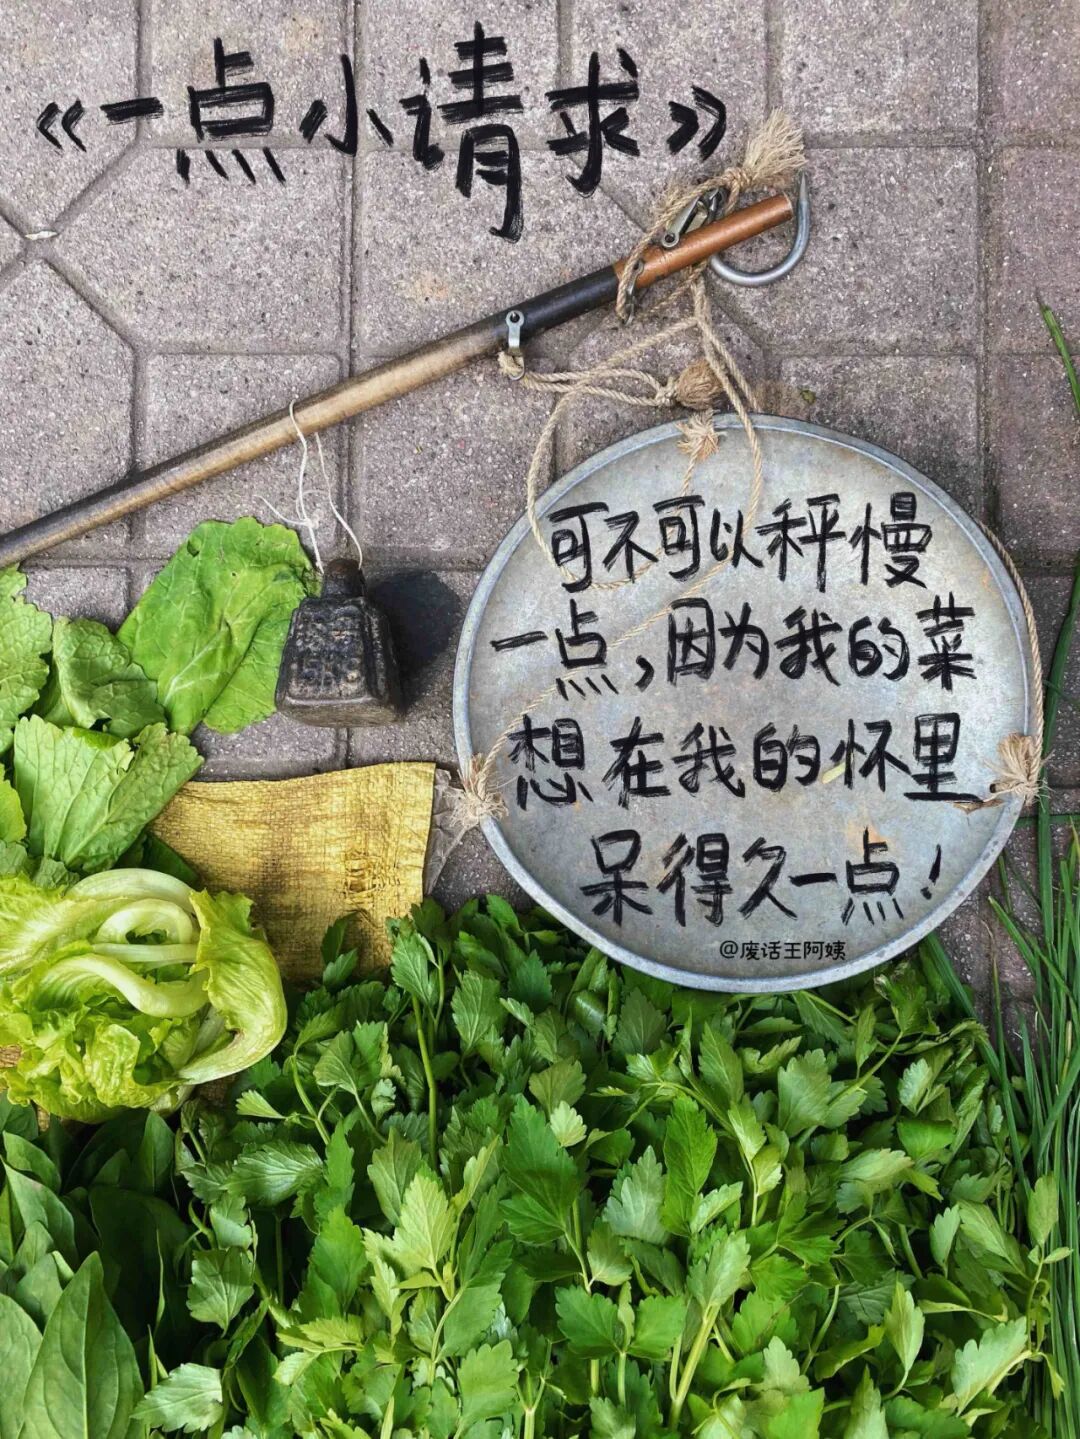 《一点小请求》
可不可以秤慢
一点,因为我的菜
想在我的怀里
呆得久一点!
@废话王阿姨